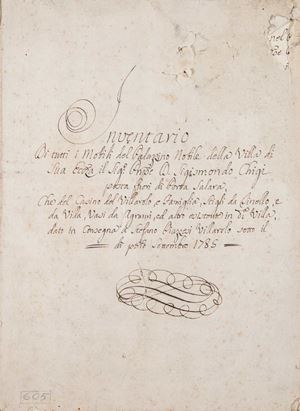 Inventario
Di tutti i Mobili del Palazzino Nobile della Villa di
Sua Eccza il Sigr Pnpe D. Sigismondo Chigi
posta fuori di Porta Salara,
Che del Casino del Villarolo, e Famiglia, Stigli da Tinello, e
da Villa, Vasi da Agrumi, ed altro esistente in da Villa,
dato in Consegna a Stefano Villarolo sotto il
di primo Settembre 1785
605